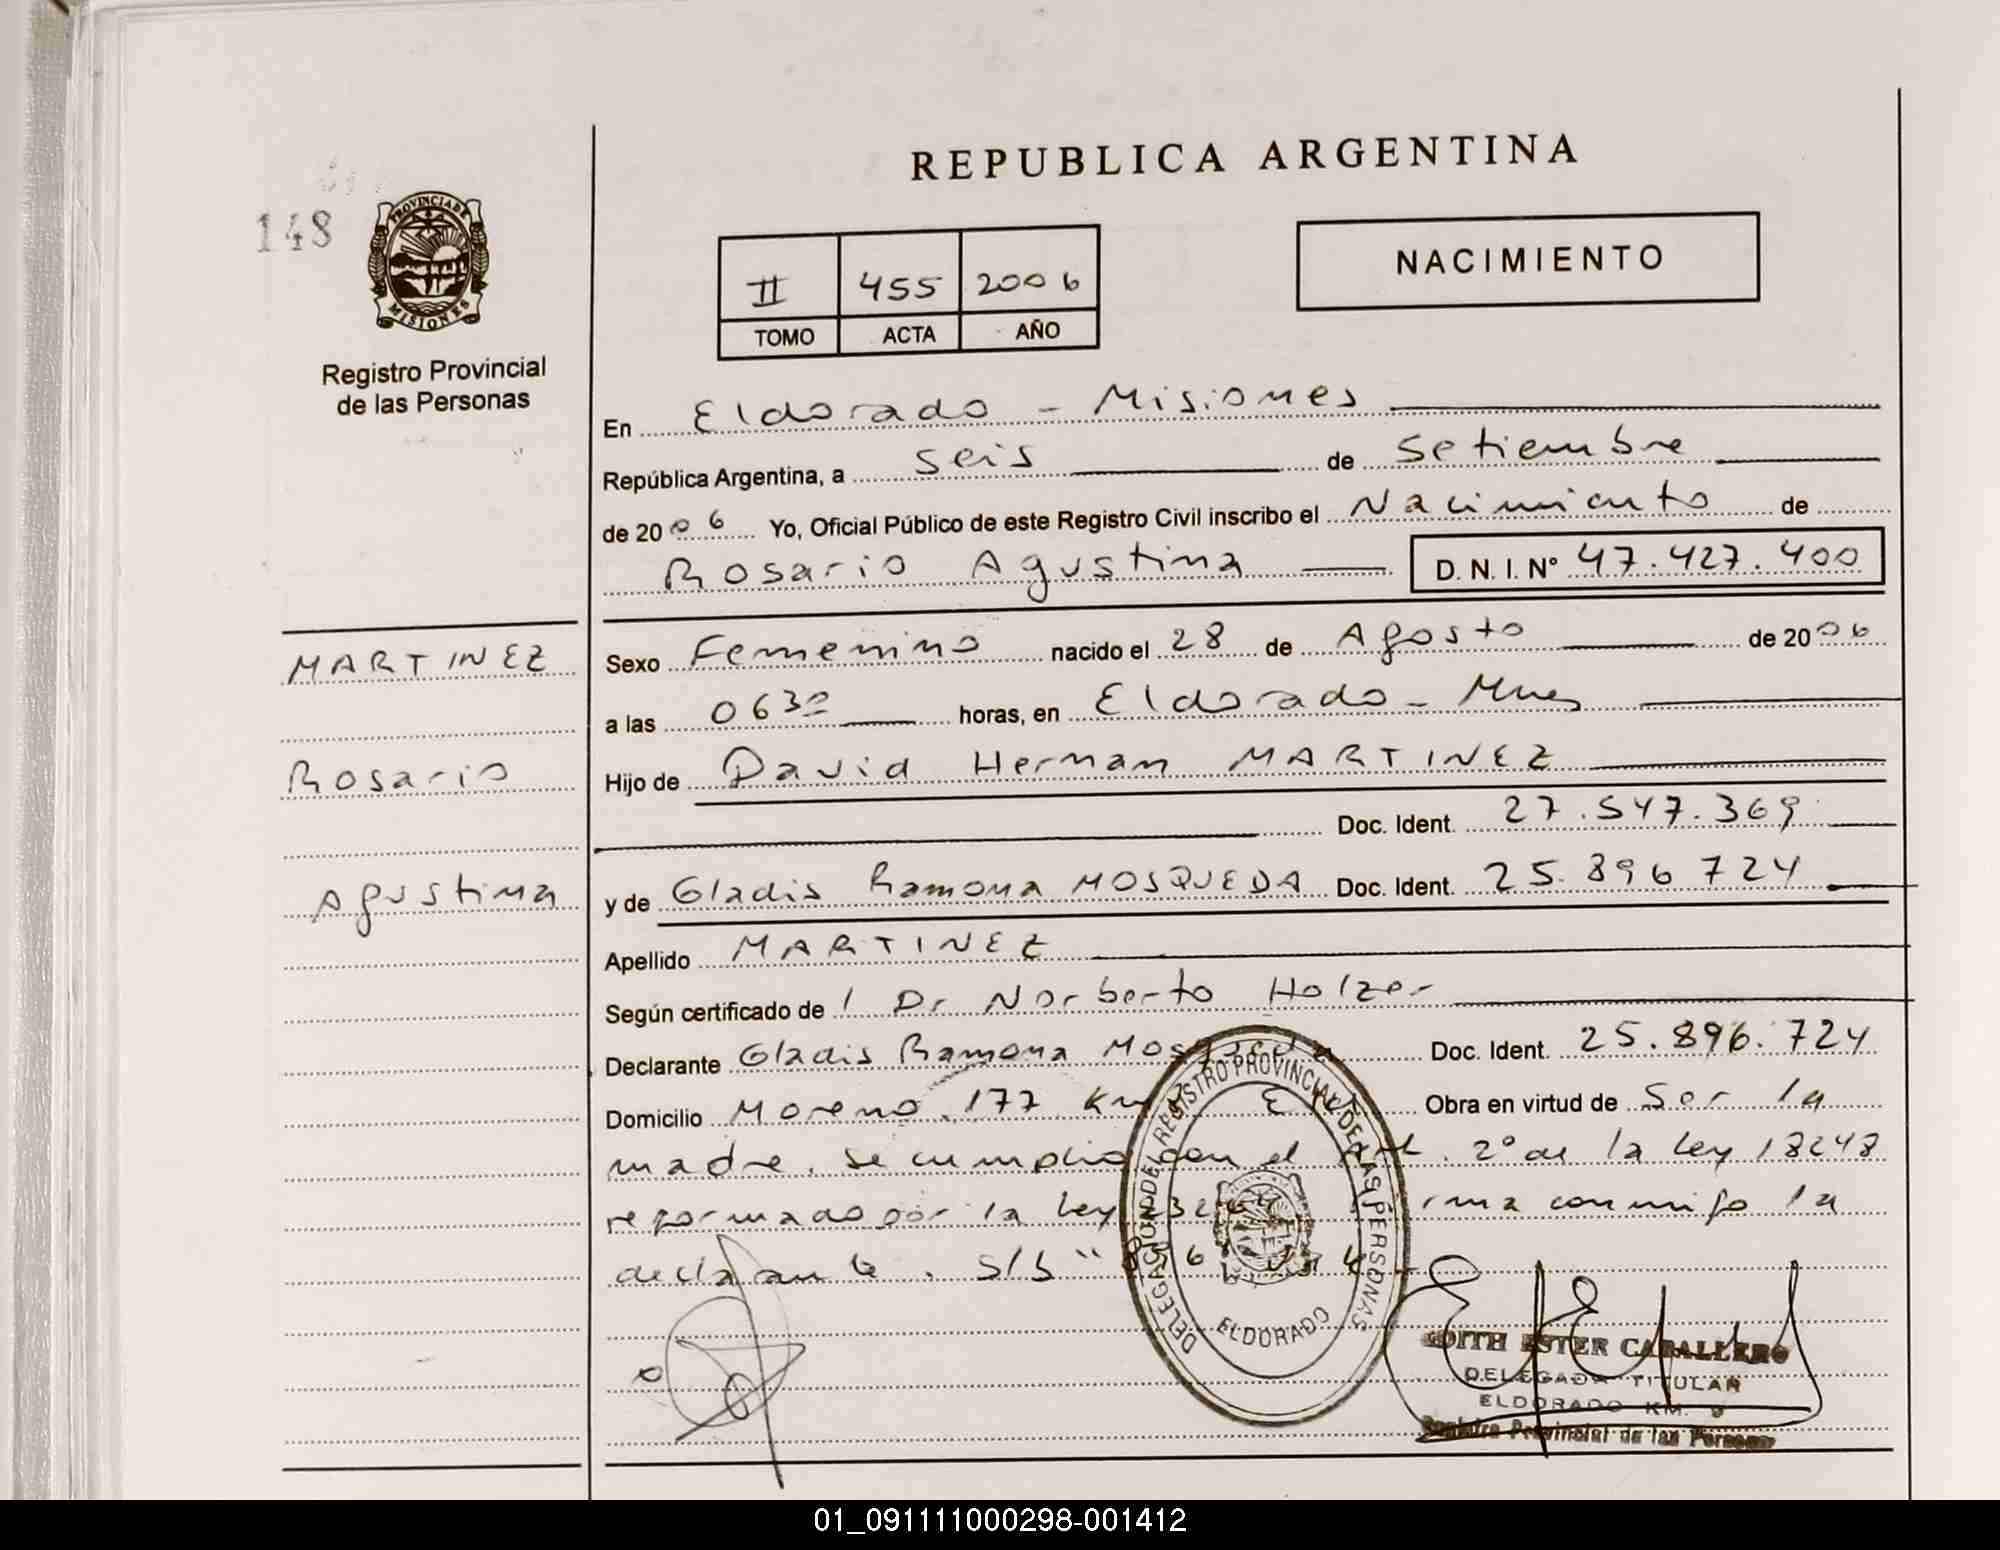 REPUBLICA ARGENTINA
148
PROVINCIA DE
MISIONES
Registro Provincial
de las Personas
II 455 2006
TOMO ACTA AÑO
NACIMIENTO
En Eldorado - Misiones
República Argentina, a seis de Setiembre
de 2006 Yo, Oficial Público de este Registro Civil inscribo el Nacimiento de
Rosario Agustina D. N. I. N° 47.427.400
MARTINEZ
Rosario
Agustina
Sexo Femenino nacido el 28 de Agosto de 2006
a las 0630 horas, en Eldorado - Mnes
Hijo de David Hernan MARTINEZ
Doc. Ident. 27.547.369
y de Gladis Ramona MOSQUEDA Doc. Ident. 25.896724
Apellido MARTINEZ
Según certificado de / Dr Norberto Holzer
Declarante Gladis Ramona Mosqueda Doc. Ident. 25.896.724
Domicilio Moreno 177 Km Obra en virtud de Ser la
madre. Se cumplio con el Art. 2° de la Ley 18248
reformado por la Ley conmigo la
declarante. S/S "
DELEGACION DEL REGISTRO PROVINCIAL DE LAS PERSONAS
ELDORADO
EDITH ESTER CABALLERO
DELEGADA TITULAR
ELDORADO KM. 9
Registro Provincial de las Personas
01_091111000298-001412